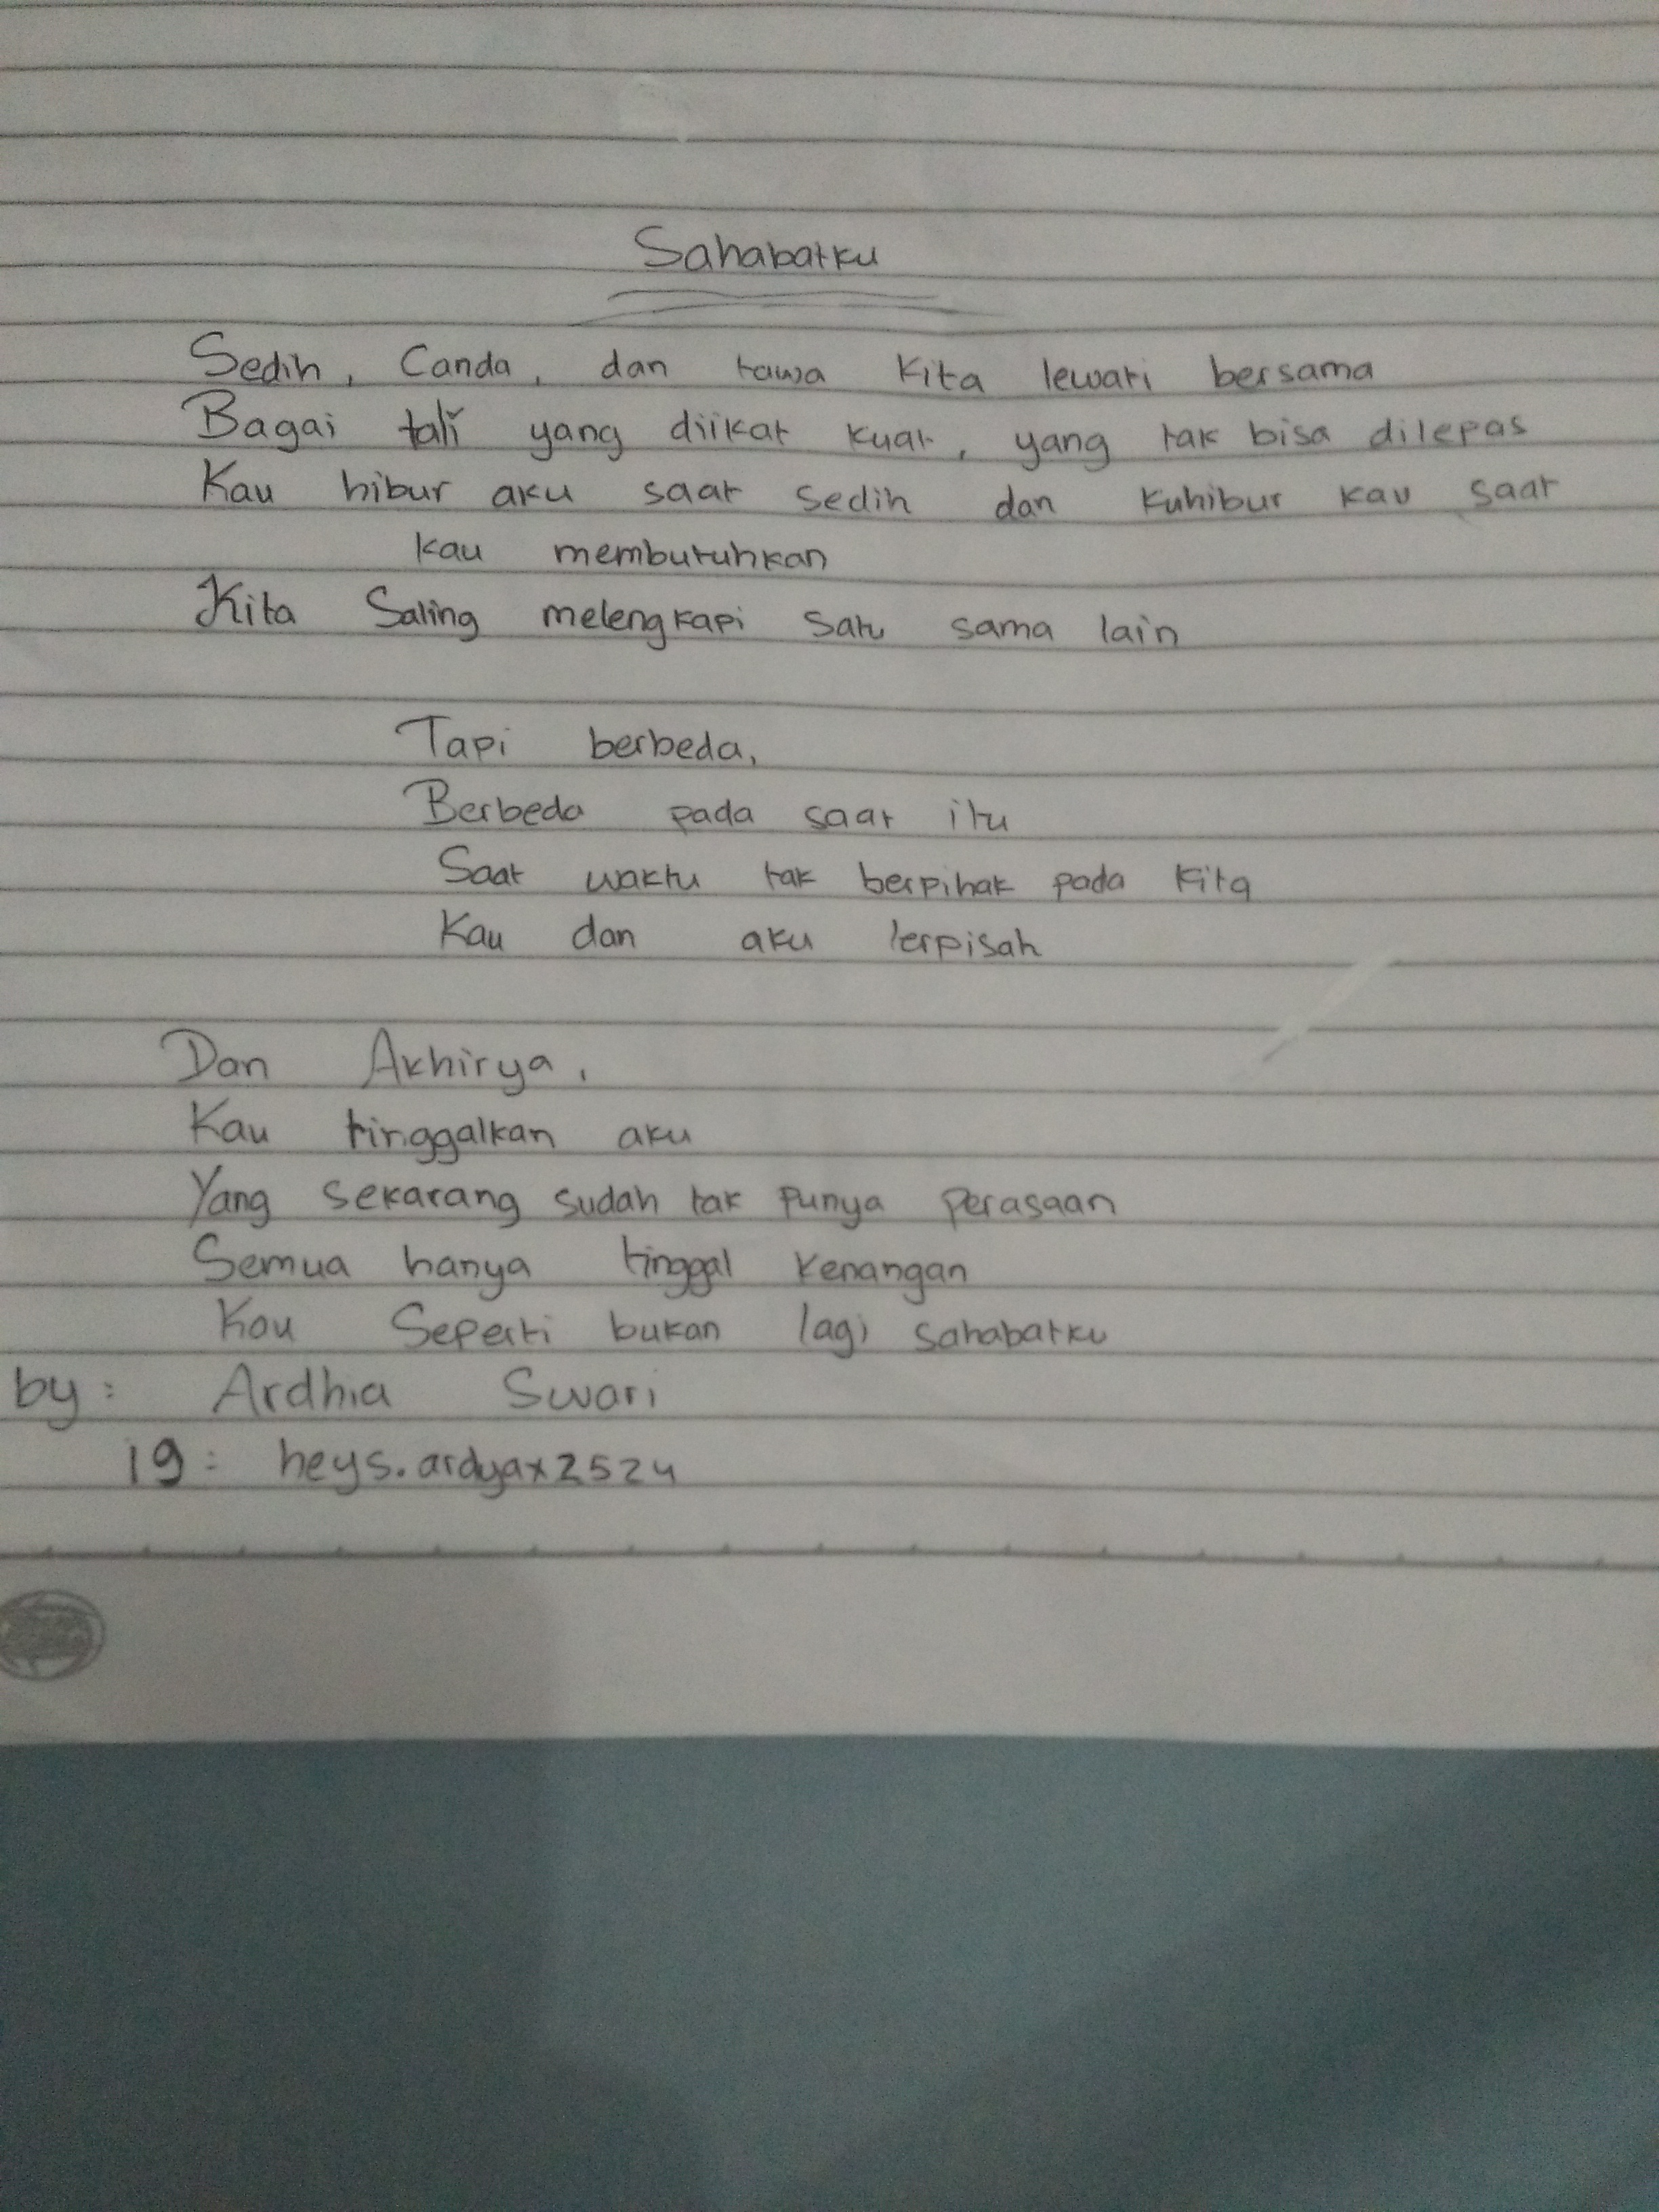 Sahabatku
Sedih, Canda, dan tawa kita lewati bersama
Bagai tali yang diikat kuat, yang tak bisa dilepas
Kau hibur aku saat sedih dan kuhibur kau saat
kau membutuhkan
Kita Saling melengkapi satu sama lain
Tapi berbeda,
Berbeda pada saat itu
Saat waktu tak berpihak pada kita
Kau dan aku terpisah
Dan Akhirya,
Kau tinggalkan aku
Yang sekarang sudah tak punya perasaan
Semua hanya tinggal kenangan
Kau Seperti bukan lagi sahabatku
by: Ardhia Swari
ig: heys.ardyax2524